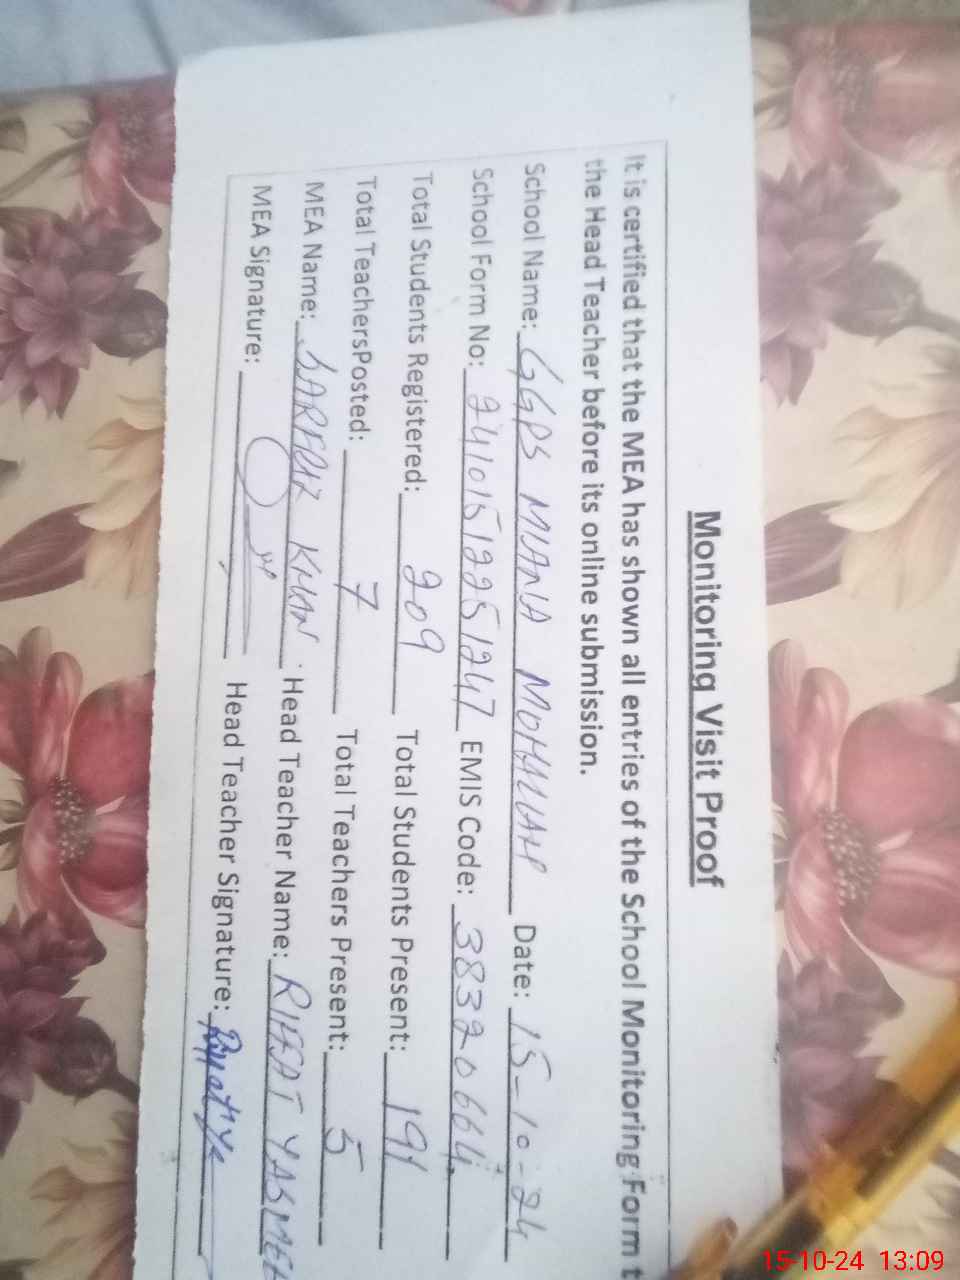 Monitoring Visit Proof
It is certified that the MEA has shown all entries of the School Monitoring Form t
the Head Teacher before its online submission.
School Name: GGPS MIANA MOHALLAH Date: 15-10-24
School Form No: 24101512251247 EMIS Code: 38320664
Total Students Registered: 209 Total Students Present: 191
Total TeachersPosted: 7 Total Teachers Present: 5
MEA Name: SARFRAZ KHAN Head Teacher Name: RIFFAT YASMEE
MEA Signature: Head Teacher Signature:
15-10-24 13:09